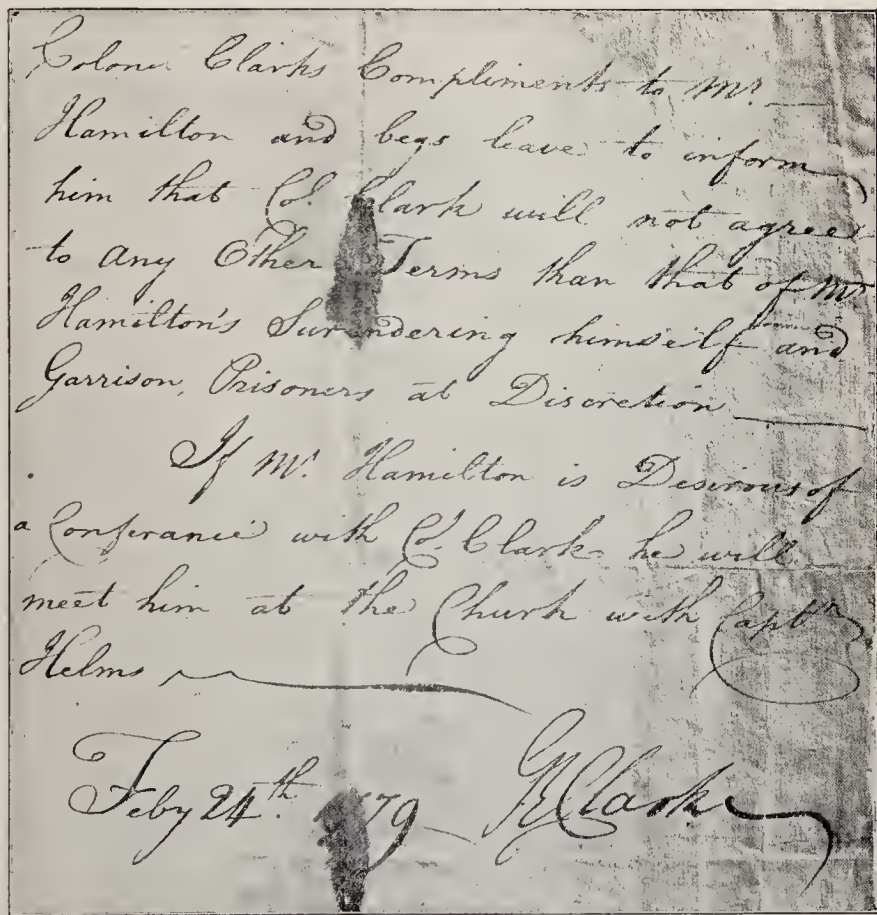 Colonel Clarks Compliments to Mr.
Hamilton and begs leave to inform
him that Col. Clark will not agree
to any Other Terms than that of Mr.
Hamilton's Surendering himself and
Garrison, Prisoners at Discretion
If Mr. Hamilton is Desirous of
a Conferance with Col. Clark he will
meet him at the Churh with Captn
Helms
Feby 24th. 1779 GRClark